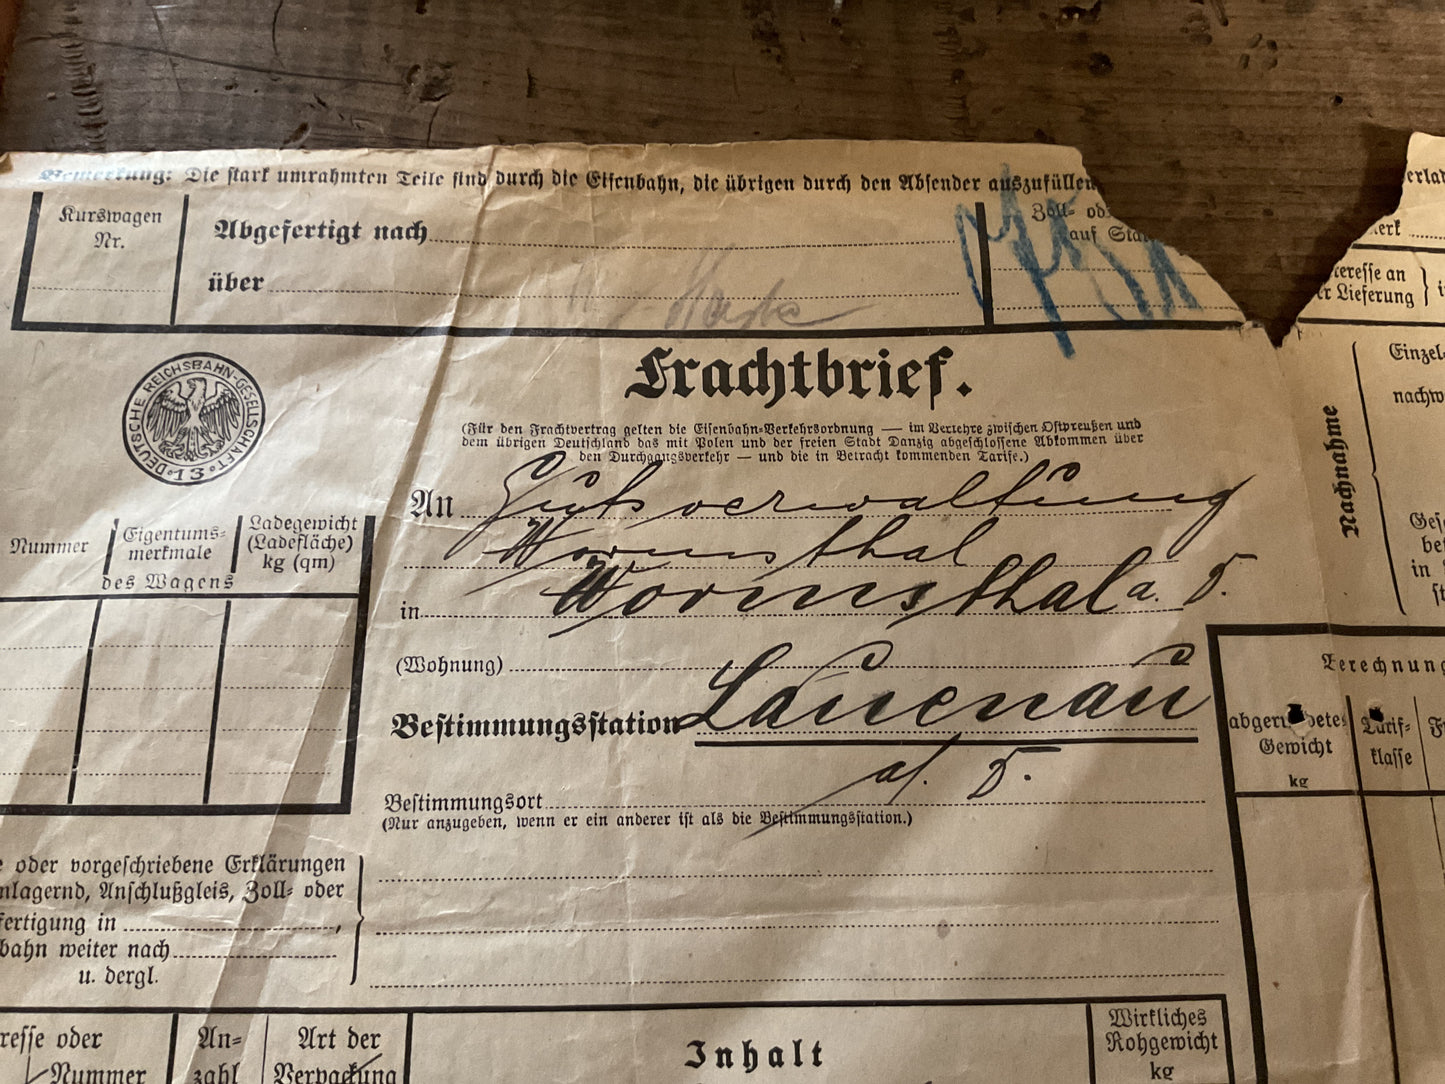 Bemerkung: Die stark umrahmten Teile sind durch die Eisenbahn, die übrigen durch den Absender auszufüllen
Kurswagen
Nr.
Abgefertigt nach
über
Zoll- od
auf Sta
teresse an
r Lieferung
DEUTSCHE REICHSBAHN-GESELLSCHAFT
13
Frachtbrief.
(Für den Frachtvertrag gelten die Eisenbahn-Verkehrsordnung — im Verkehre zwischen Ostpreußen und
dem übrigen Deutschland das mit Polen und der freien Stadt Danzig abgeschlossene Abkommen über
den Durchgangsverkehr — und die in Betracht kommenden Tarife.)
An Gutsverwaltung
Wormsthal
in Wormsthal a. D.
(Wohnung)
Bestimmungsstation Lauenau
a/. D.
Bestimmungsort
(Nur anzugeben, wenn er ein anderer ist als die Bestimmungsstation.)
Nummer
Eigentums-
merkmale
Ladegewicht
(Ladefläche)
kg (qm)
des Wagens
e oder vorgeschriebene Erklärungen
nlagernd, Anschlußgleis, Zoll- oder
fertigung in
bahn weiter nach
u. dergl.
Nachnahme
Einzel-
nachw
Ges
be
in
st
Berechnung
abgerundetes
Gewicht
kg
Tarif-
klasse
F
resse oder
Nummer
An-
zahl
Art der
Verpackung
Inhalt
Wirkliches
Rohgewicht
kg